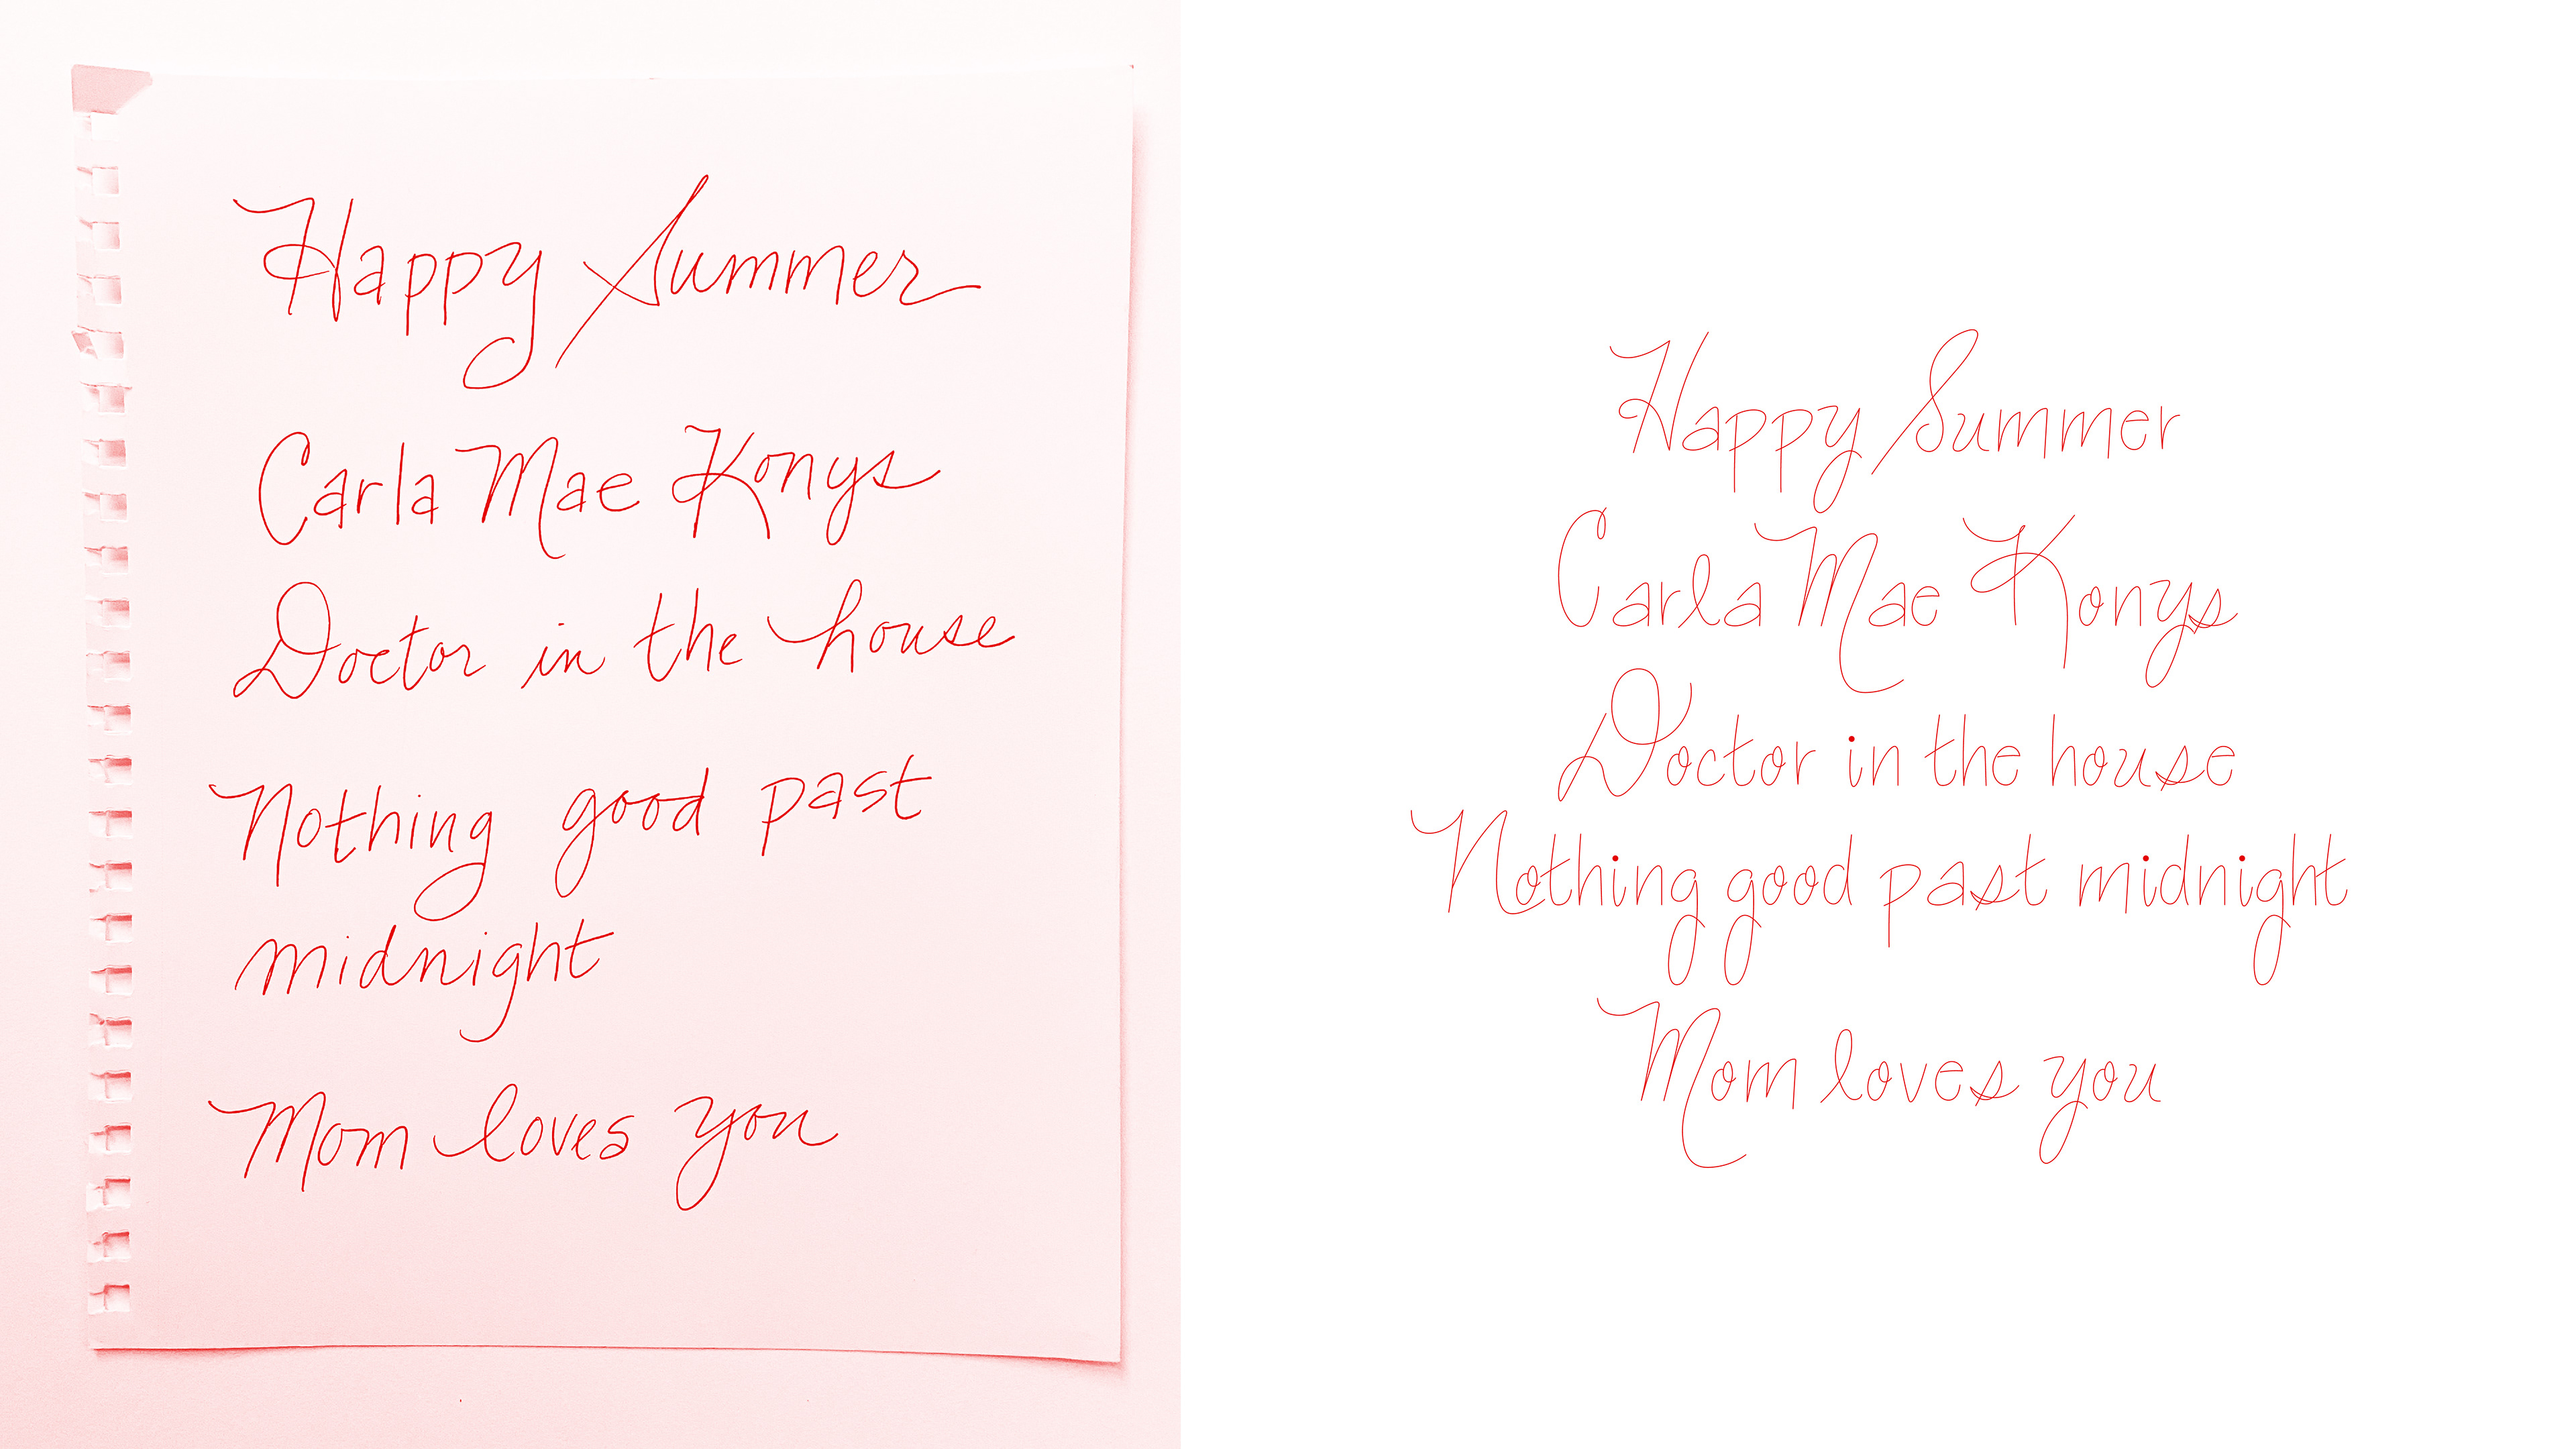 Happy Summer
Carla Mae Konys
Doctor in the house
Nothing good past
midnight
Mom loves you
Happy Summer
Carla Mae Konys
Doctor in the house
Nothing good past midnight
Mom loves you